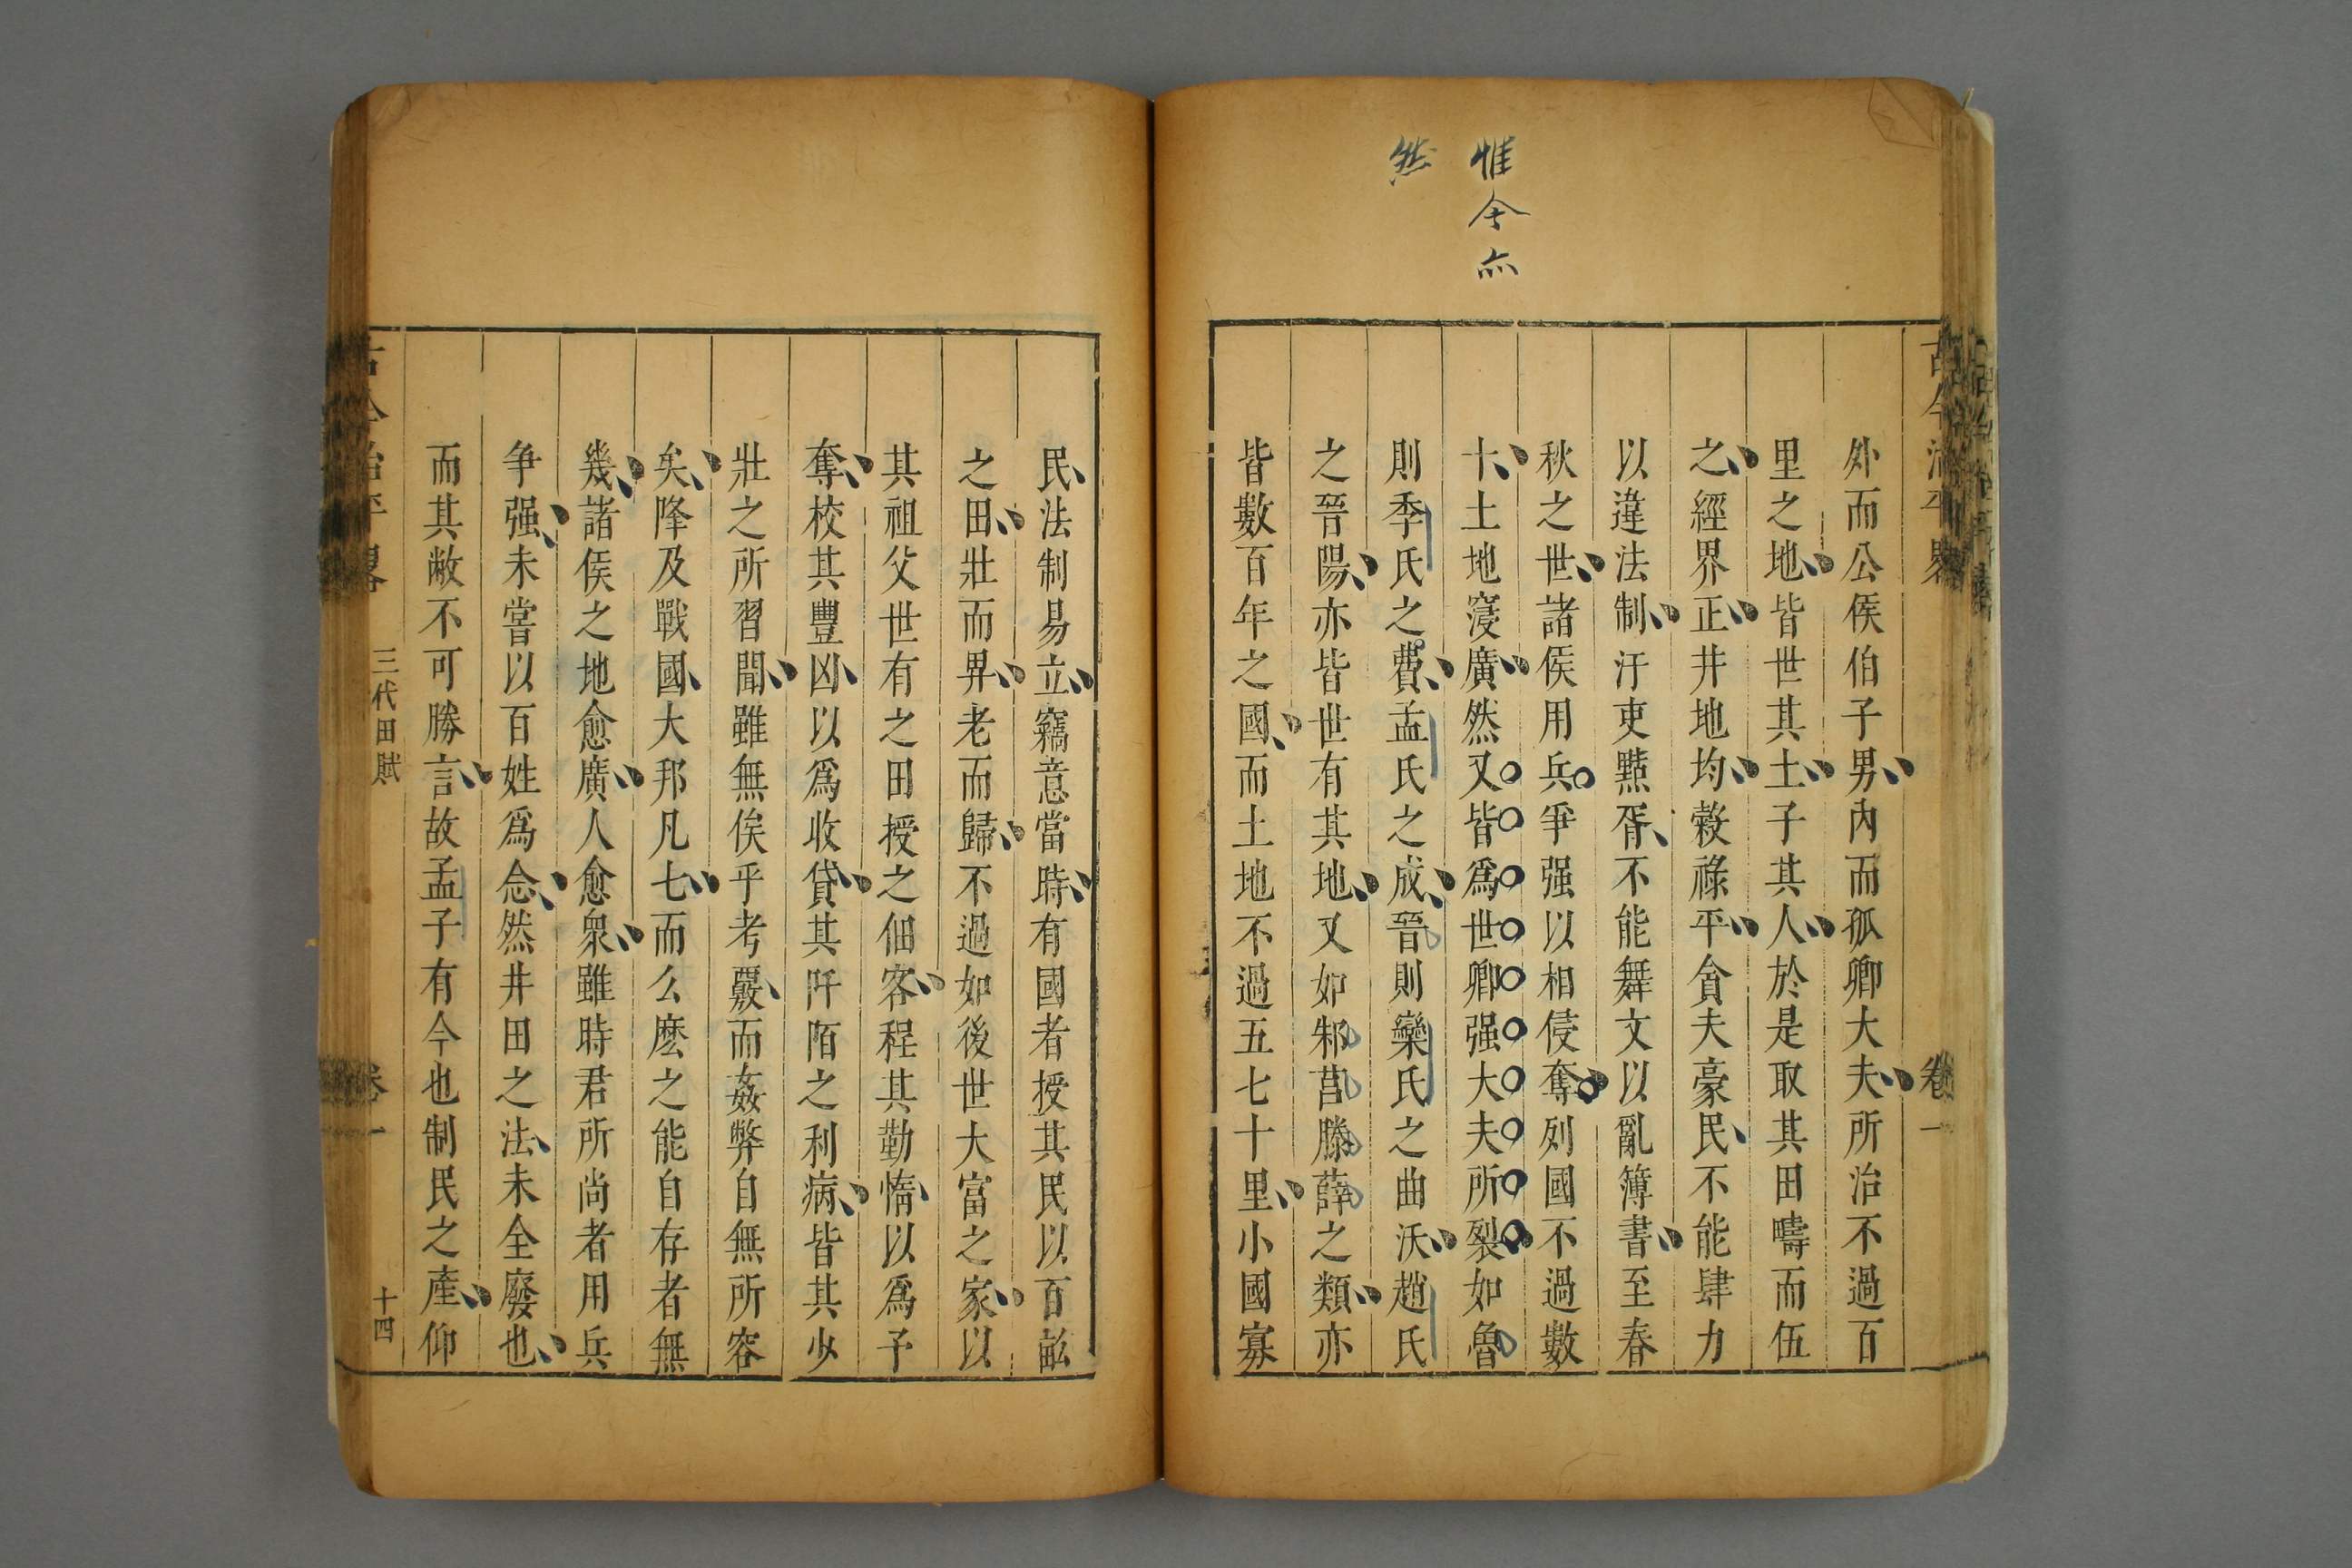 惟今亦
然
古今治平畧
卷一
外而公侯伯子男內而孤卿大夫所治不過百
里之地皆世其土子其人於是取其田疇而伍
之經界正井地均穀祿平貪夫豪民不能肆力
以違法制汙吏黠胥不能舞文以亂簿書至春
秋之世諸侯用兵爭强以相侵奪列國不過數
十土地寖廣然又皆爲世卿强大夫所裂如魯
則季氏之費孟氏之成晉則欒氏之曲沃趙氏
之晉陽亦皆世有其地又如邾莒滕薛之類亦
皆數百年之國而土地不過五七十里小國寡
民法制易立竊意當時有國者授其民以百畝
之田壯而畀老而歸不過如後世大富之家以
其祖父世有之田授之佃客程其勤惰以爲予
奪校其豐凶以爲收貸其阡陌之利病皆其少
壯之所習聞雖無俟乎考覈而姦弊自無所容
矣降及戰國大邦凡七而么麽之能自存者無
幾諸侯之地愈廣人愈衆雖時君所尚者用兵
争强未嘗以百姓爲念然井田之法未全廢也
而其敝不可勝言故孟子有今也制民之產仰
古今治平畧 三代田賦 卷一 十四